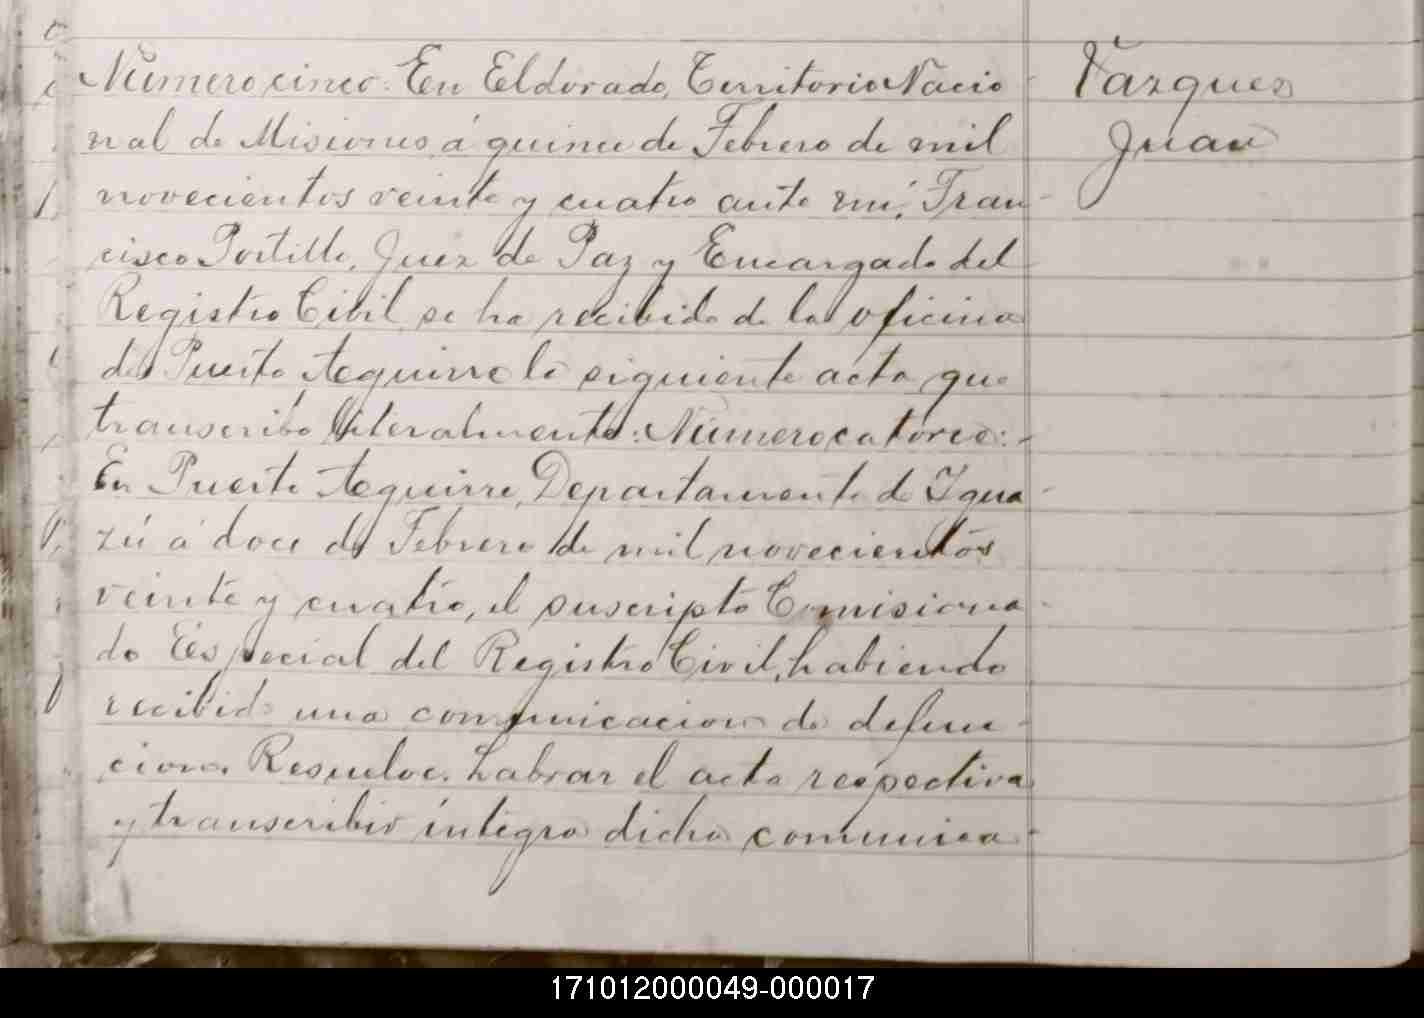 Número cinco: En Eldorado, Territorio Nacio
Vazquez
nal de Misiones á quince de Febrero de mil
Juan
novecientos veinte y cuatro ante mí, Fran
cisco Portillo, Juez de Paz y Encargado del
Registro Civil se ha recibido de la oficina
de Puerto Aguirre la siguiente acta que
transcribo literalmente: Número catorce:
En Puerto Aguirre, Departamento de Igua
zú a doce de Febrero de mil novecientos
veinte y cuatro, el suscripto Comisiona
do Especial del Registro Civil, habiendo
recibido una comunicacion de defun
cion. Resuelve. Labrar el acta respectiva
y transcribir íntegra dicha comunica
171012000049-000017